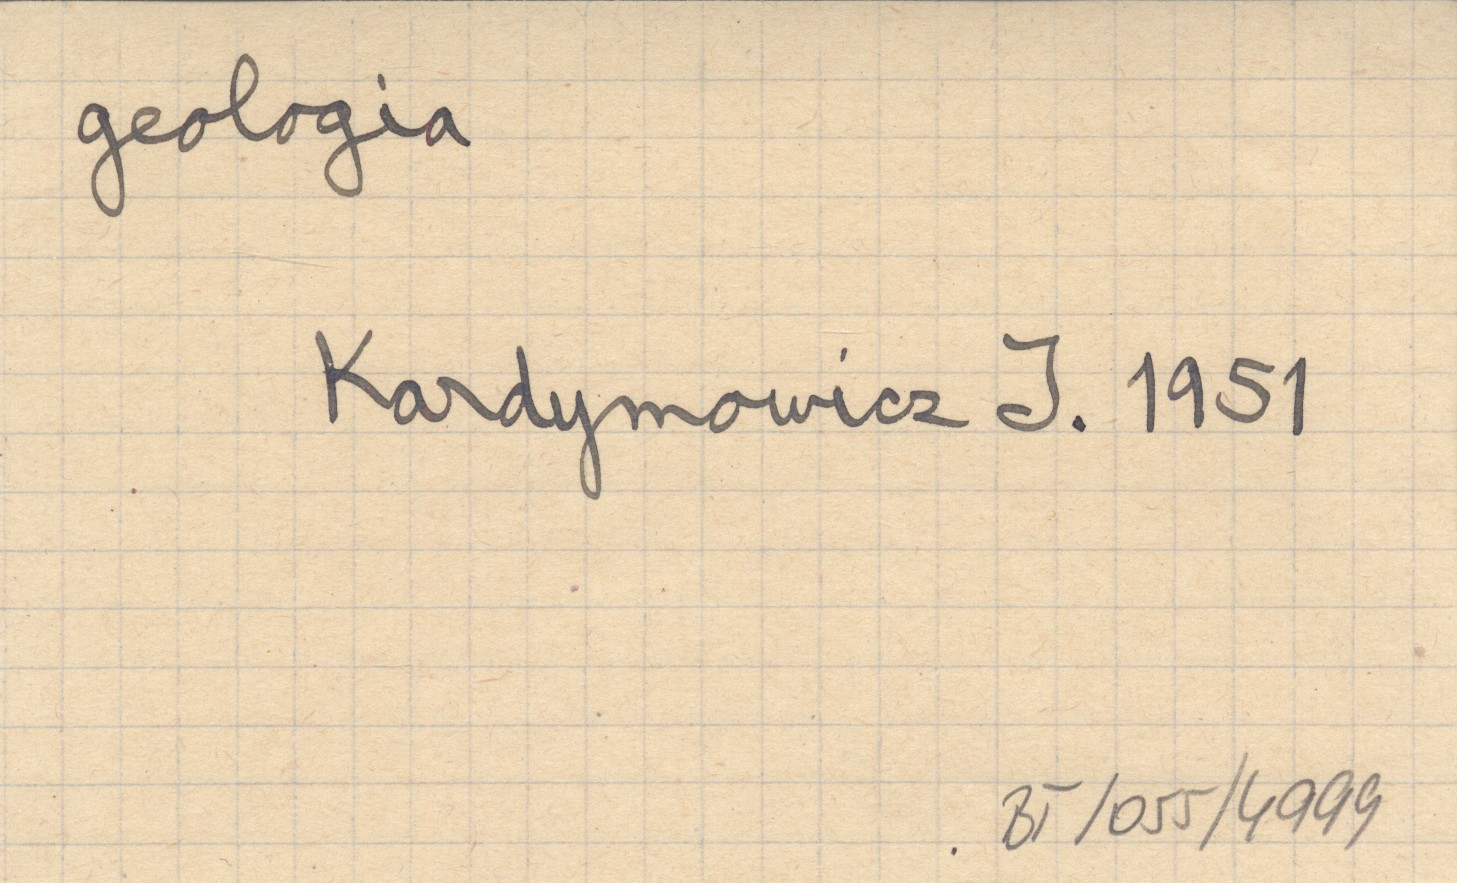 geologia
Kardymowicz J. 1951
BT/055/4999